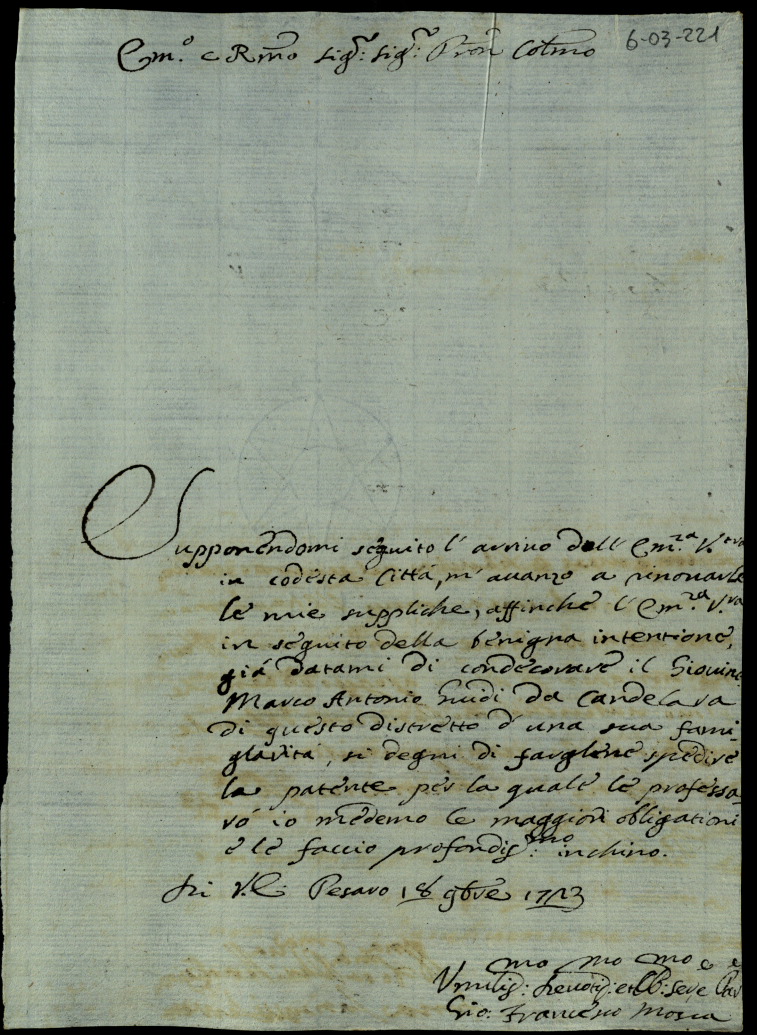 Em.o e Rmo Sig.r Sig.r Pron Colmo 6-03-221
Supponendomi seguito l'arrivo dell'Em.za V.tra
in codesta Città, m'avanzo a rinovarle
le mie suppliche, affinche l'Em.za V.ra
in seguito della benigna intentione,
già datami di condecorare il Giovine
Marco Antonio Guidi da Candelara
di questo distretto d'una sua fami-
gliarità, si degni di farglene spedire
la patente per la quale le professa-
rò io medemo le maggiori obligationi
e le faccio profondis.mo inchino.
Di V.E. Pesaro 18 9bre 1723
Umilis.mo Devotis.mo et Ob.mo Serv.e
Gio: Francesco Mosca